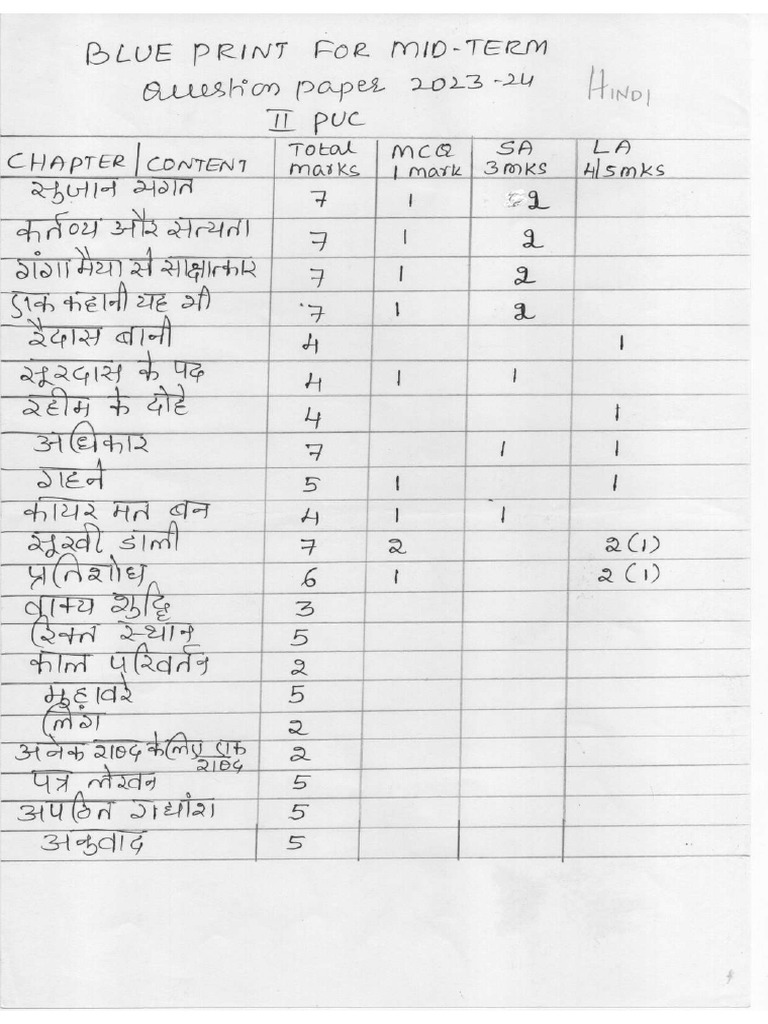 BLUE PRINT FOR MID-TERM
Question paper 2023-24 HINDI
II PUC
CHAPTER/CONTENT Total marks MCQ 1 mark SA 3 mks LA 4/5 mks
सुजान भगत 7 1 2
कर्तव्य और सत्यता 7 1 2
गंगा मैया से साक्षात्कार 7 1 2
एक कहानी यह भी 7 1 2
रैदास बानी 4 1
सूरदास के पद 4 1 1
रहीम के दोहे 4 1
अधिकार 7 1 1
गहने 5 1 1
कायर मत बन 4 1 1
सूखी डाली 7 2 2(1)
प्रतिशोध 6 1 2(1)
वाक्य शुद्धि 3
रिक्त स्थान 5
काल परिवर्तन 2
मुहावरे 5
लिंग 2
अनेक शब्द के लिए एक शब्द 2
पत्र लेखन 5
अपठित गद्यांश 5
अनुवाद 5